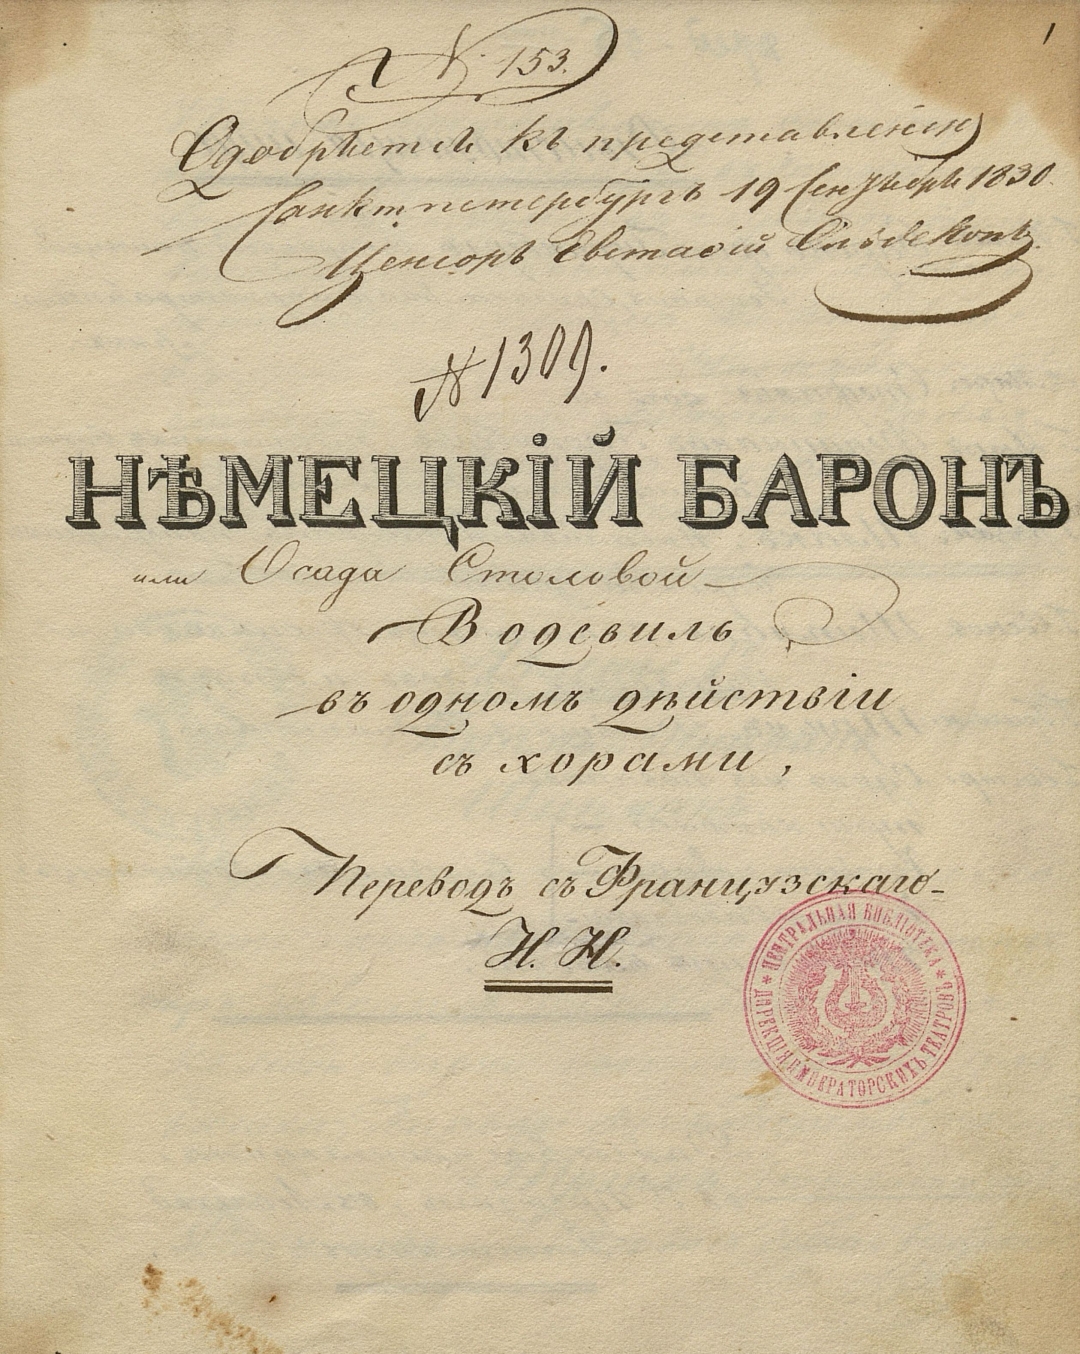 1
N. 153.
Одобряется къ представленію
Санктпетербургъ 19 Сентября 1830.
Цензоръ Евстафій
N 1309.
НѢМЕЦКІЙ БАРОНЪ
или Осада Столовой
Водевиль
въ одномъ дѣйствіи
съ хорами,
Переводъ съ Французскаго
Н. Н.
* ЦЕНТРАЛЬНАЯ БИБЛІОТЕКА *
ДИРЕКЦІИ ИМПЕРАТОРСКИХЪ ТЕАТРОВЪ